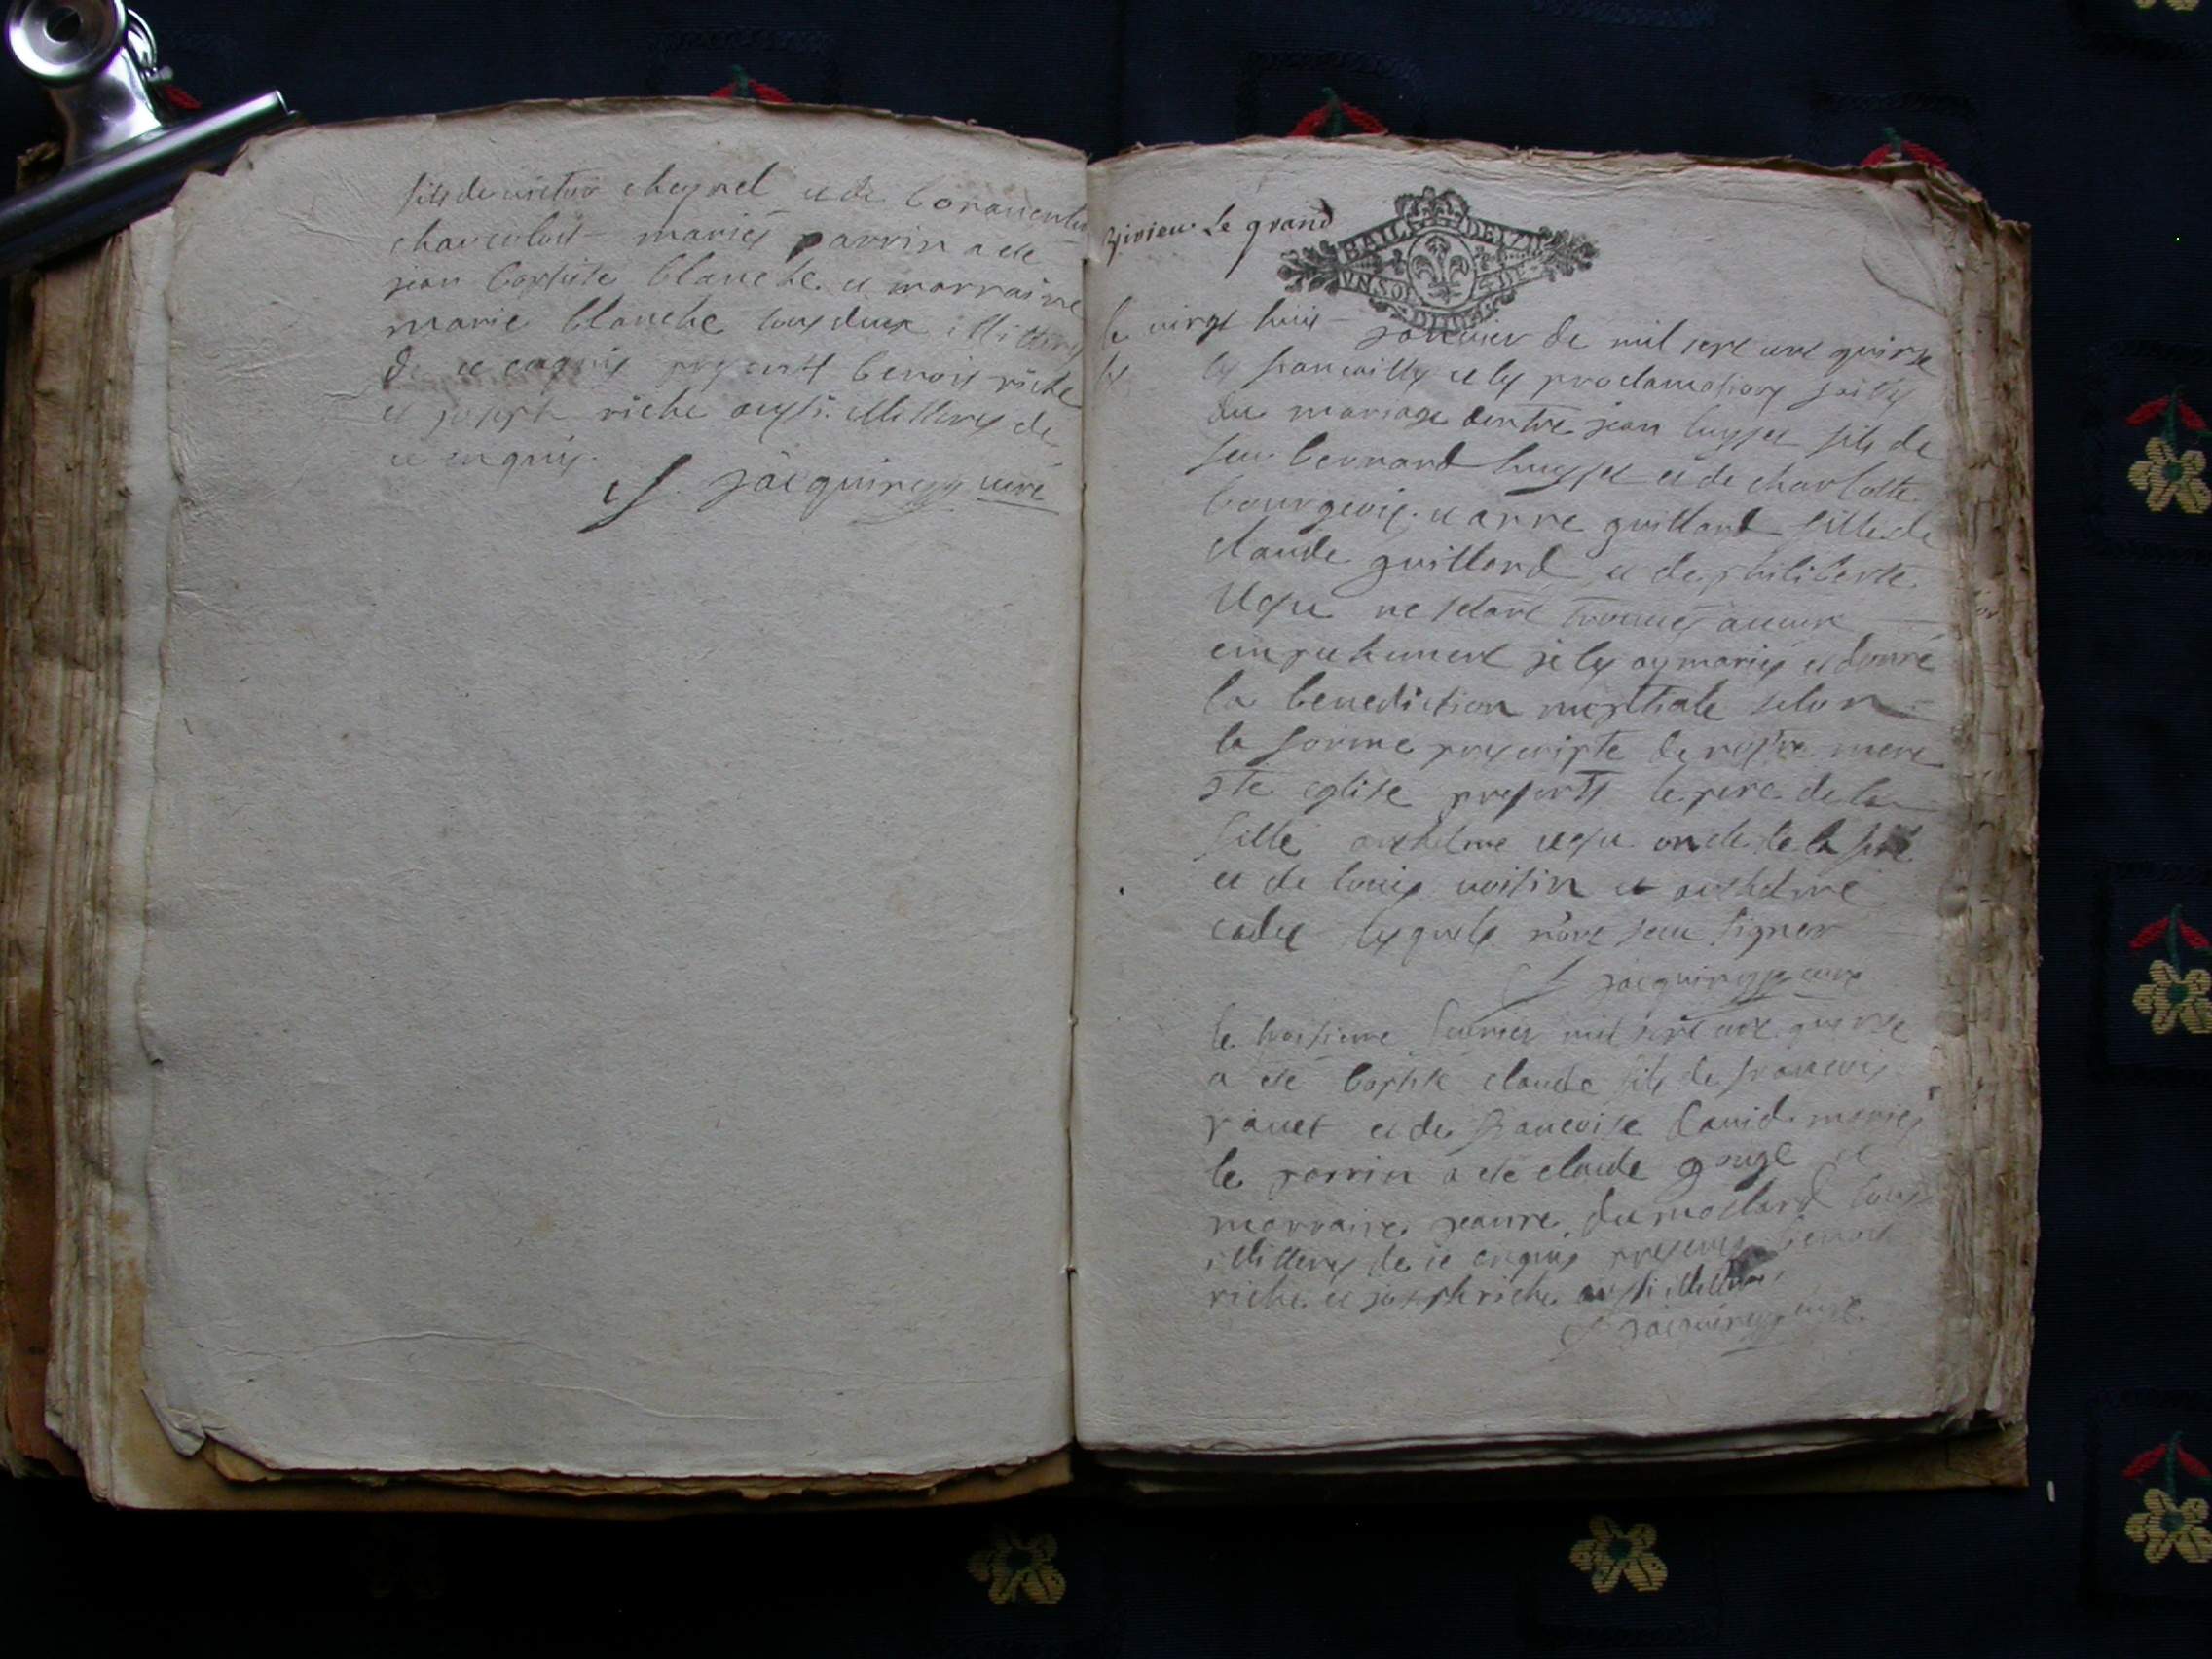 fils de victor cheynel et de bonauentu
chauentuit mariés parrin a ete
jean baptiste blanche et marraine
marie blanche tous deux illitterés
de ce enquis presents benoit riche
et joseph riche aussi illitterés de
ce enquis.
jacquinet curé
Virieu Le grand
BAIL DE DIZIE
VN SOL 4 DE
le vingt huit januier de mil sept cent quinse
les fiancailles et les proclamations faittes
du mariage dentre jean huysset fils de
feu bernard huysset et de charlotte
bourgeois. et anne guillard fille de
claude guillard et de philiberte
ne setant trouués aucun
empechement je les ay mariés et donné
la benediction nuptiale selon
la forme prescripte de nostre mere
ste eglise presents le pere de la
fille anthelme oncle de la
et de louis voisin et anthelme
lesquels n'ont sceu signer
jacquinet curé
le troisieme feurier mil sept cent quinse
a eté baptisé claude fils de francois
et de francoise dauid mariés
le parrin a eté claude gouge et
marraine jeanne du mollard tous
illitterés de ce enquis presents benoit
riche et joseph riche aussi illitterés
jacquinet curé.